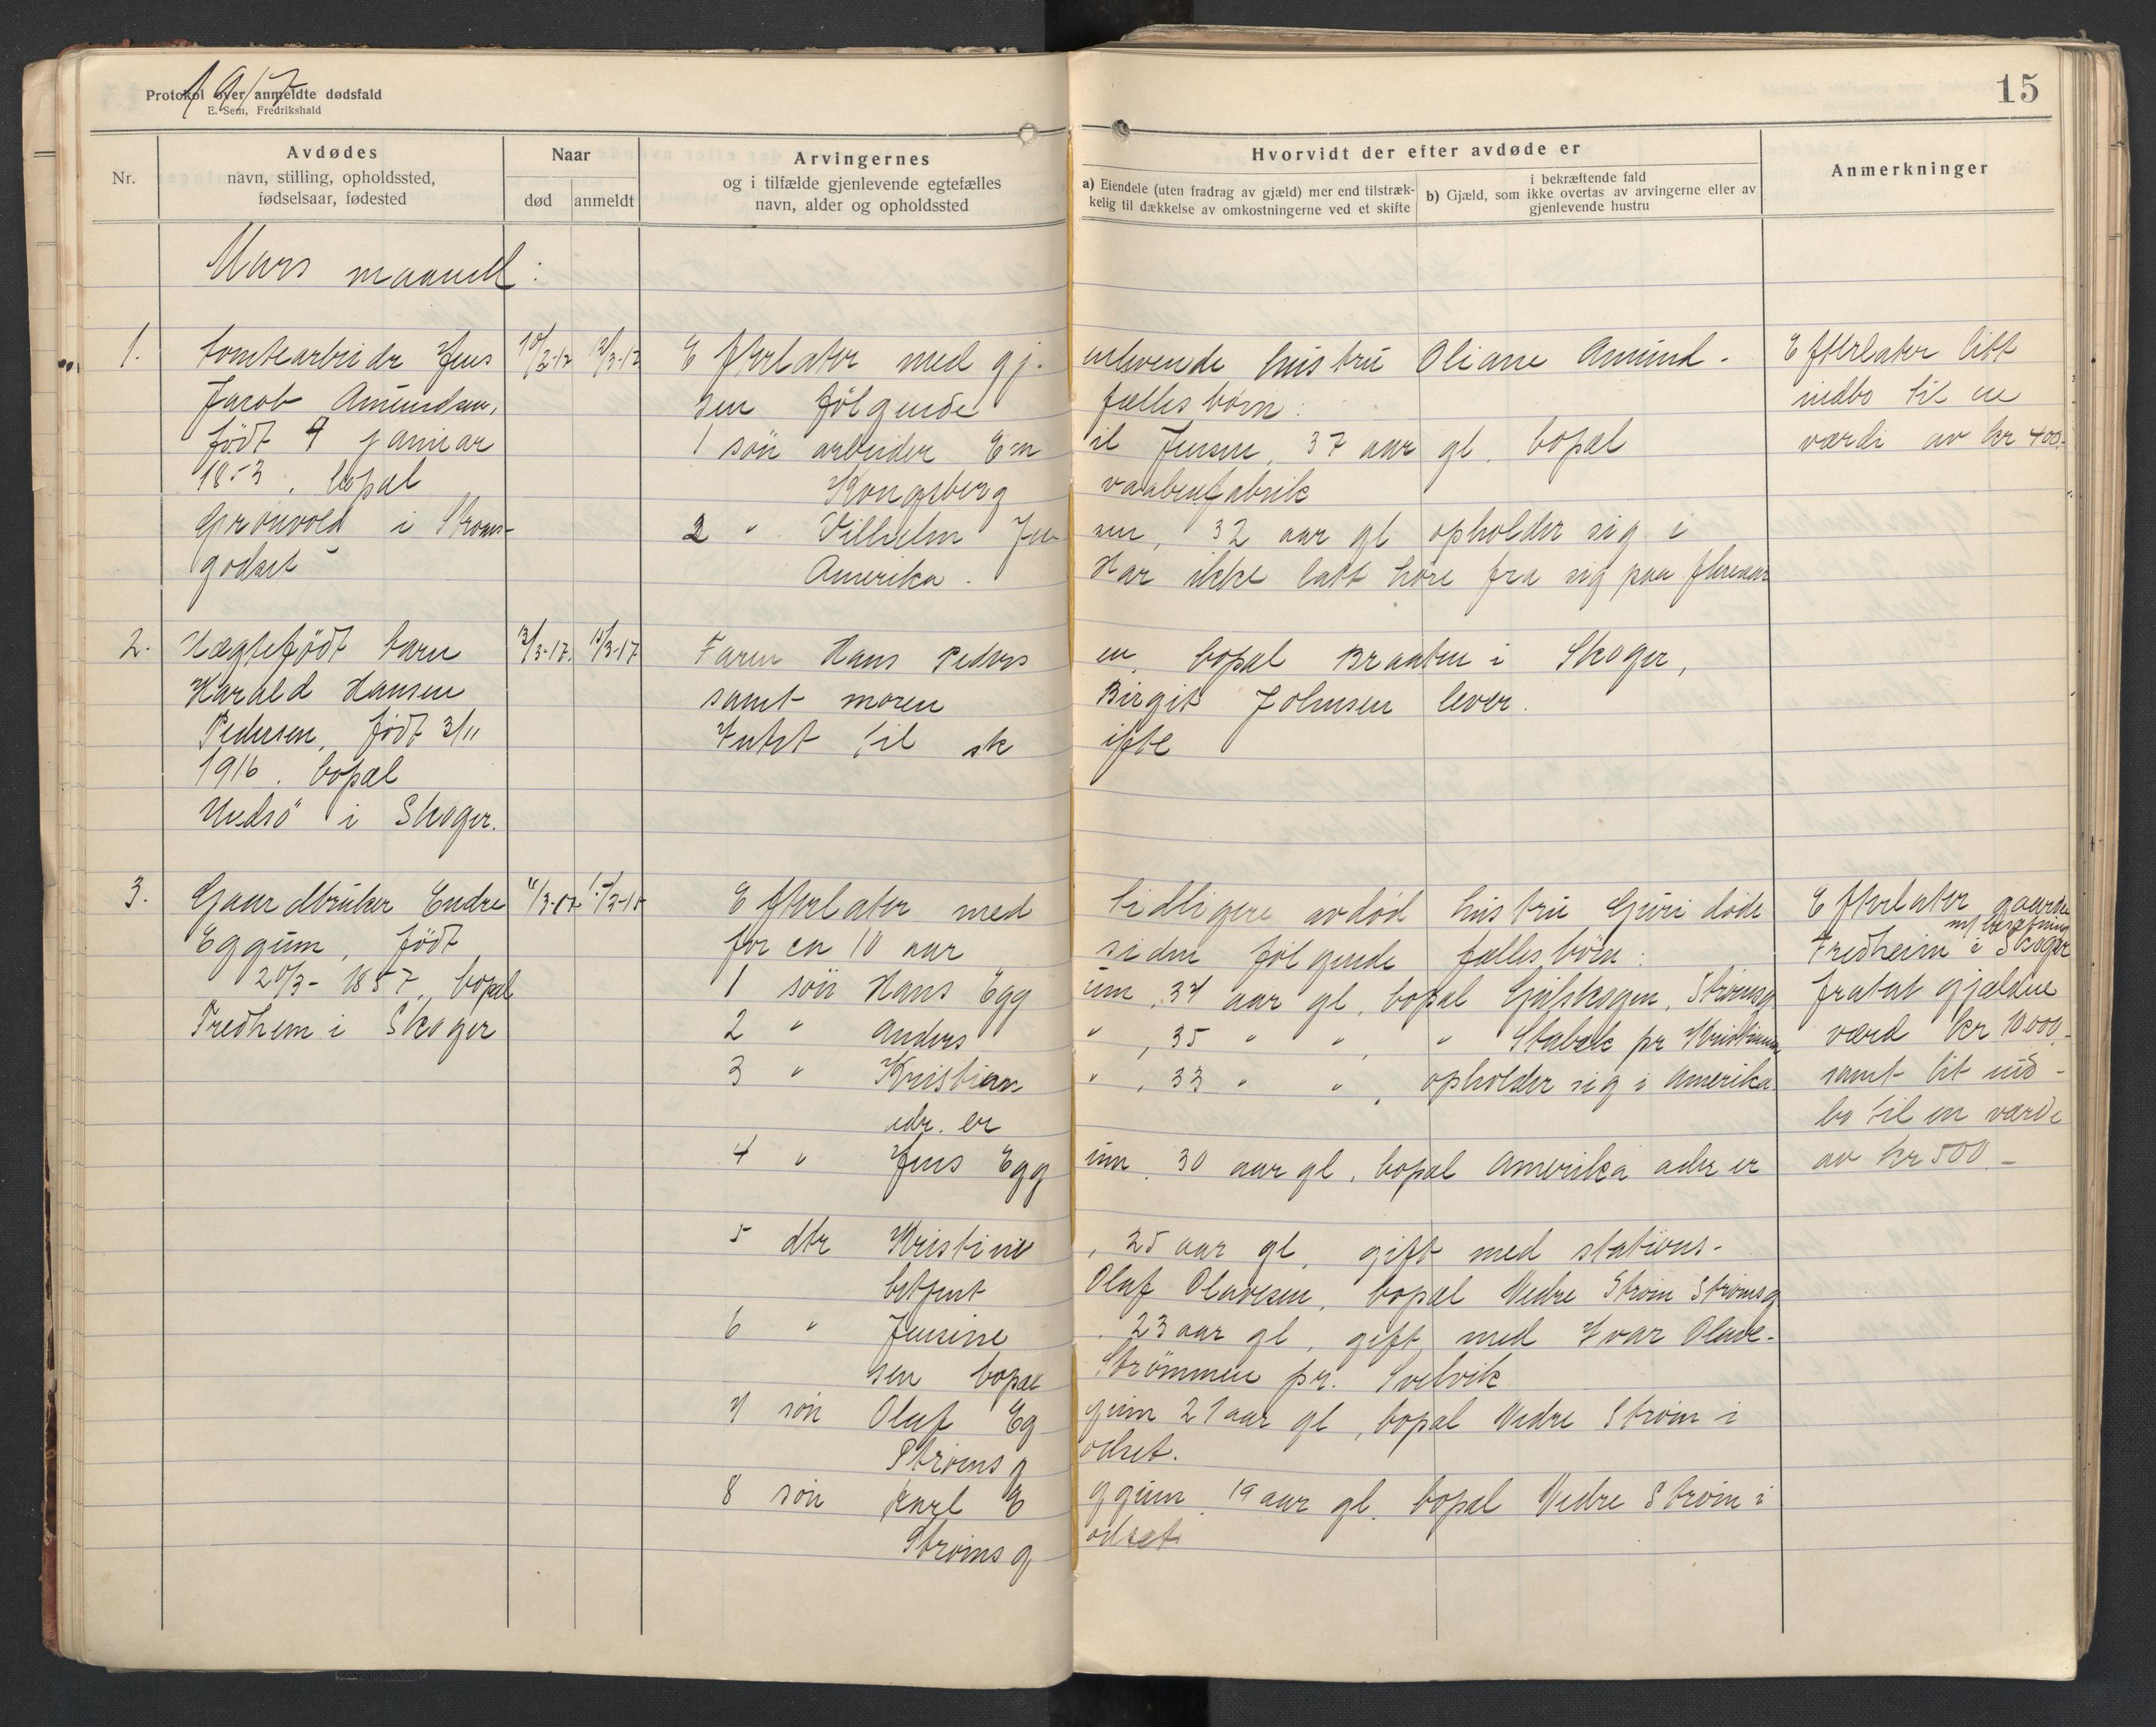 1917
Protokol over anmeldte dødsfald
E. Sem, Fredrikshald
15
Nr.
Avdødes
navn, stilling, opholdssted,
fødselsaar, fødested
Naar
død
anmeldt
Arvingernes
og i tilfælde gjenlevende egtefælles
navn, alder og opholdssted
Hvorvidt der efter avdøde er
a) Eiendele (uten fradrag av gjæld) mer end tilstræk-
kelig til dækkelse av omkostningerne ved et skifte
i bekræftende fald
b) Gjæld, som ikke overtas av arvingerne eller av
gjenlevende hustru
Anmerkninger
Mars maaned:
1. tomtearbeider Jens 10/3-17 12/3-17 Efterlater med gj. enlevende hustru Oliane Amund- Efterlater litt
Jacob Amundsen, sen følgende fælles børn: indbo til en
født 9 januar 1 søn arbeider Em il Jensen, 37 aar gl. bopæl værdi av kr 400.-
1853, bopæl Kongsberg vaabenfabrik
Grønvold i Strøms- 2 " Vilhelm Jen sen, 32 aar gl opholder sig i
godset Amerika. Har ikke latt høre fra sig paa flereaar
2. Uægtefødt barn 13/3-17. 15/3-17 Faren Hans Peders en, bopæl Braaten i Skoger,
Harald Hansen samt moren Birgit Johnsen lever.
Pedersen, født 3/11 Intet til sk ifte
1916. bopæl
i Skoger.
3. Gaardbruker Endre 11/3-17 15/3-17 Efterlater med tidligere avdød hustru Guri døde Efterlater gaarden
Eggum, født for ca 10 aar siden følgende fælles børn: m/ besætning
Fredheim i Skoger
20/3-1857, bopæl 1 søn Hans Egg um, 37 aar gl, bopæl Gulskogen, Strømsg. fratat gjælden
Fredhem i Skoger 2 " Anders " , 35 " " , " Stabæk pr Kristiania værd kr 10.000.-
3 " Kristian " , 33 " " , opholder sig i Amerika samt lit ind-
adr. er bo til en værdi
4 " Jens Egg um, 30 aar gl, bopæl Amerika adr er av kr 500.-
5 dtr Kristine , 25 aar gl, gift med stations-
betjent Olaf Olavesen, bopæl Nedre Strøm Strømsg
6 " Jensine , 23 aar gl, gift med Ivar Olave-
sen bopæl Strømmen pr. Svelvik
7 søn Olaf Eg gum 21 aar gl, bopæl Nedre Strøm i
Strømsg odset.
8 søn Karl E ggum 19 aar gl. bopæl Nedre Strøm i
Strømsg odset